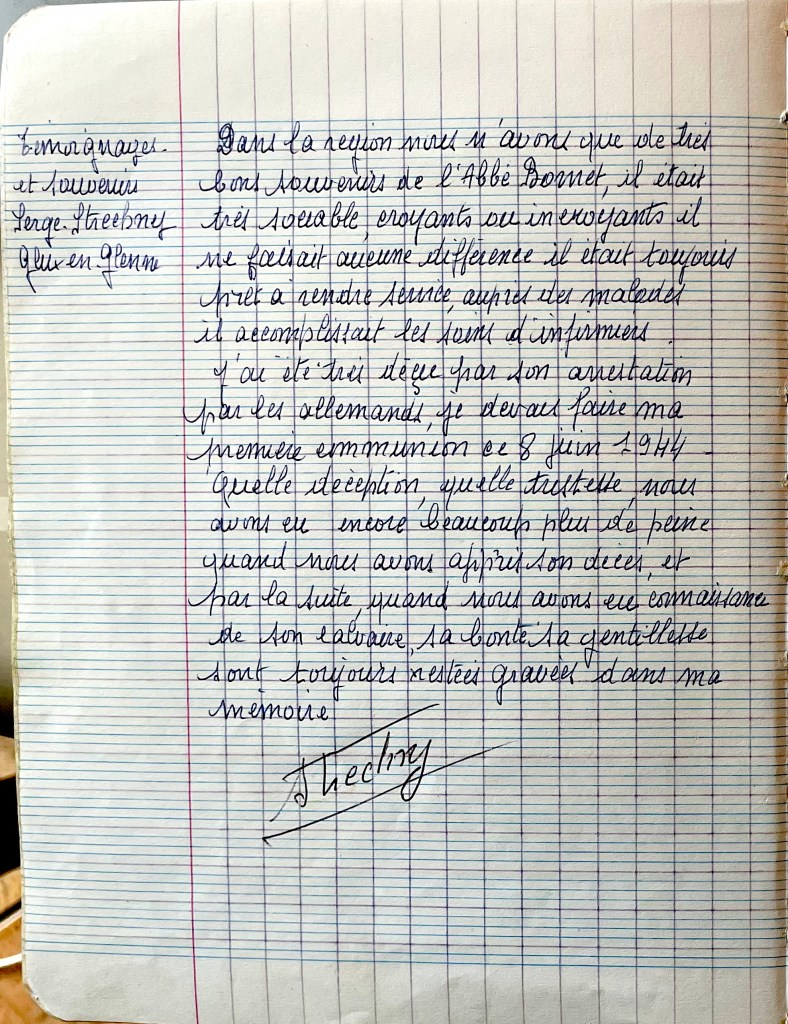 témoignages.
et souvenirs
Serge. Strecbny
Glux en Glenne
Dans la region nous n'avons que de très
bons souvenirs de l'Abbé Bornet, il était
très sociable, croyants ou incroyants il
ne faisait aucune différence il était toujours
prêt a rendre service, aupres des malades
il accomplissait les soins d'infirmiers.
J'ai été très déçue par son arrestation
par les allemands, je devais faire ma
première communion ce 8 juin 1944
Quelle déception, quelle tristesse, nous
avons eu encore beaucoup plus de peine
quand nous avons appris son décès, et
par la suite, quand nous avons eu connaissance
de son calvaire, sa bonté sa gentillesse
sont toujours restées gravées dans ma
mémoire